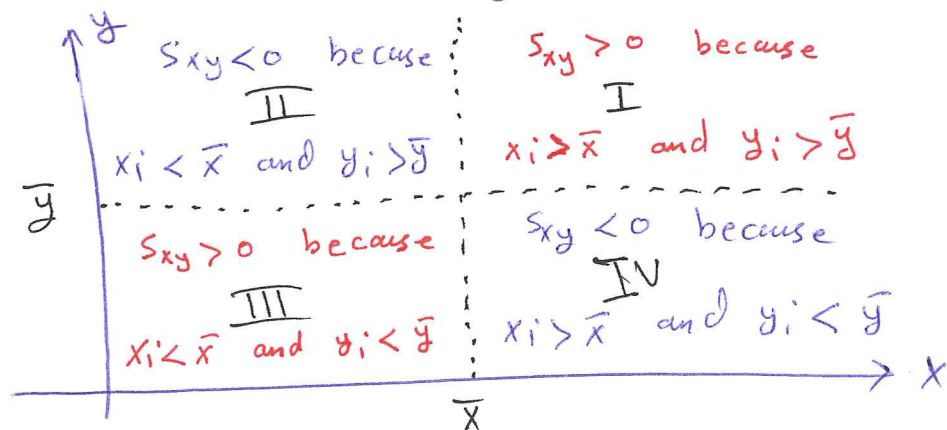 y
S_xy < 0 because
II
x_i < x̄ and y_i > ȳ
S_xy > 0 because
I
x_i > x̄ and y_i > ȳ
ȳ
S_xy > 0 because
III
x_i < x̄ and y_i < ȳ
S_xy < 0 because
IV
x_i > x̄ and y_i < ȳ
x
x̄